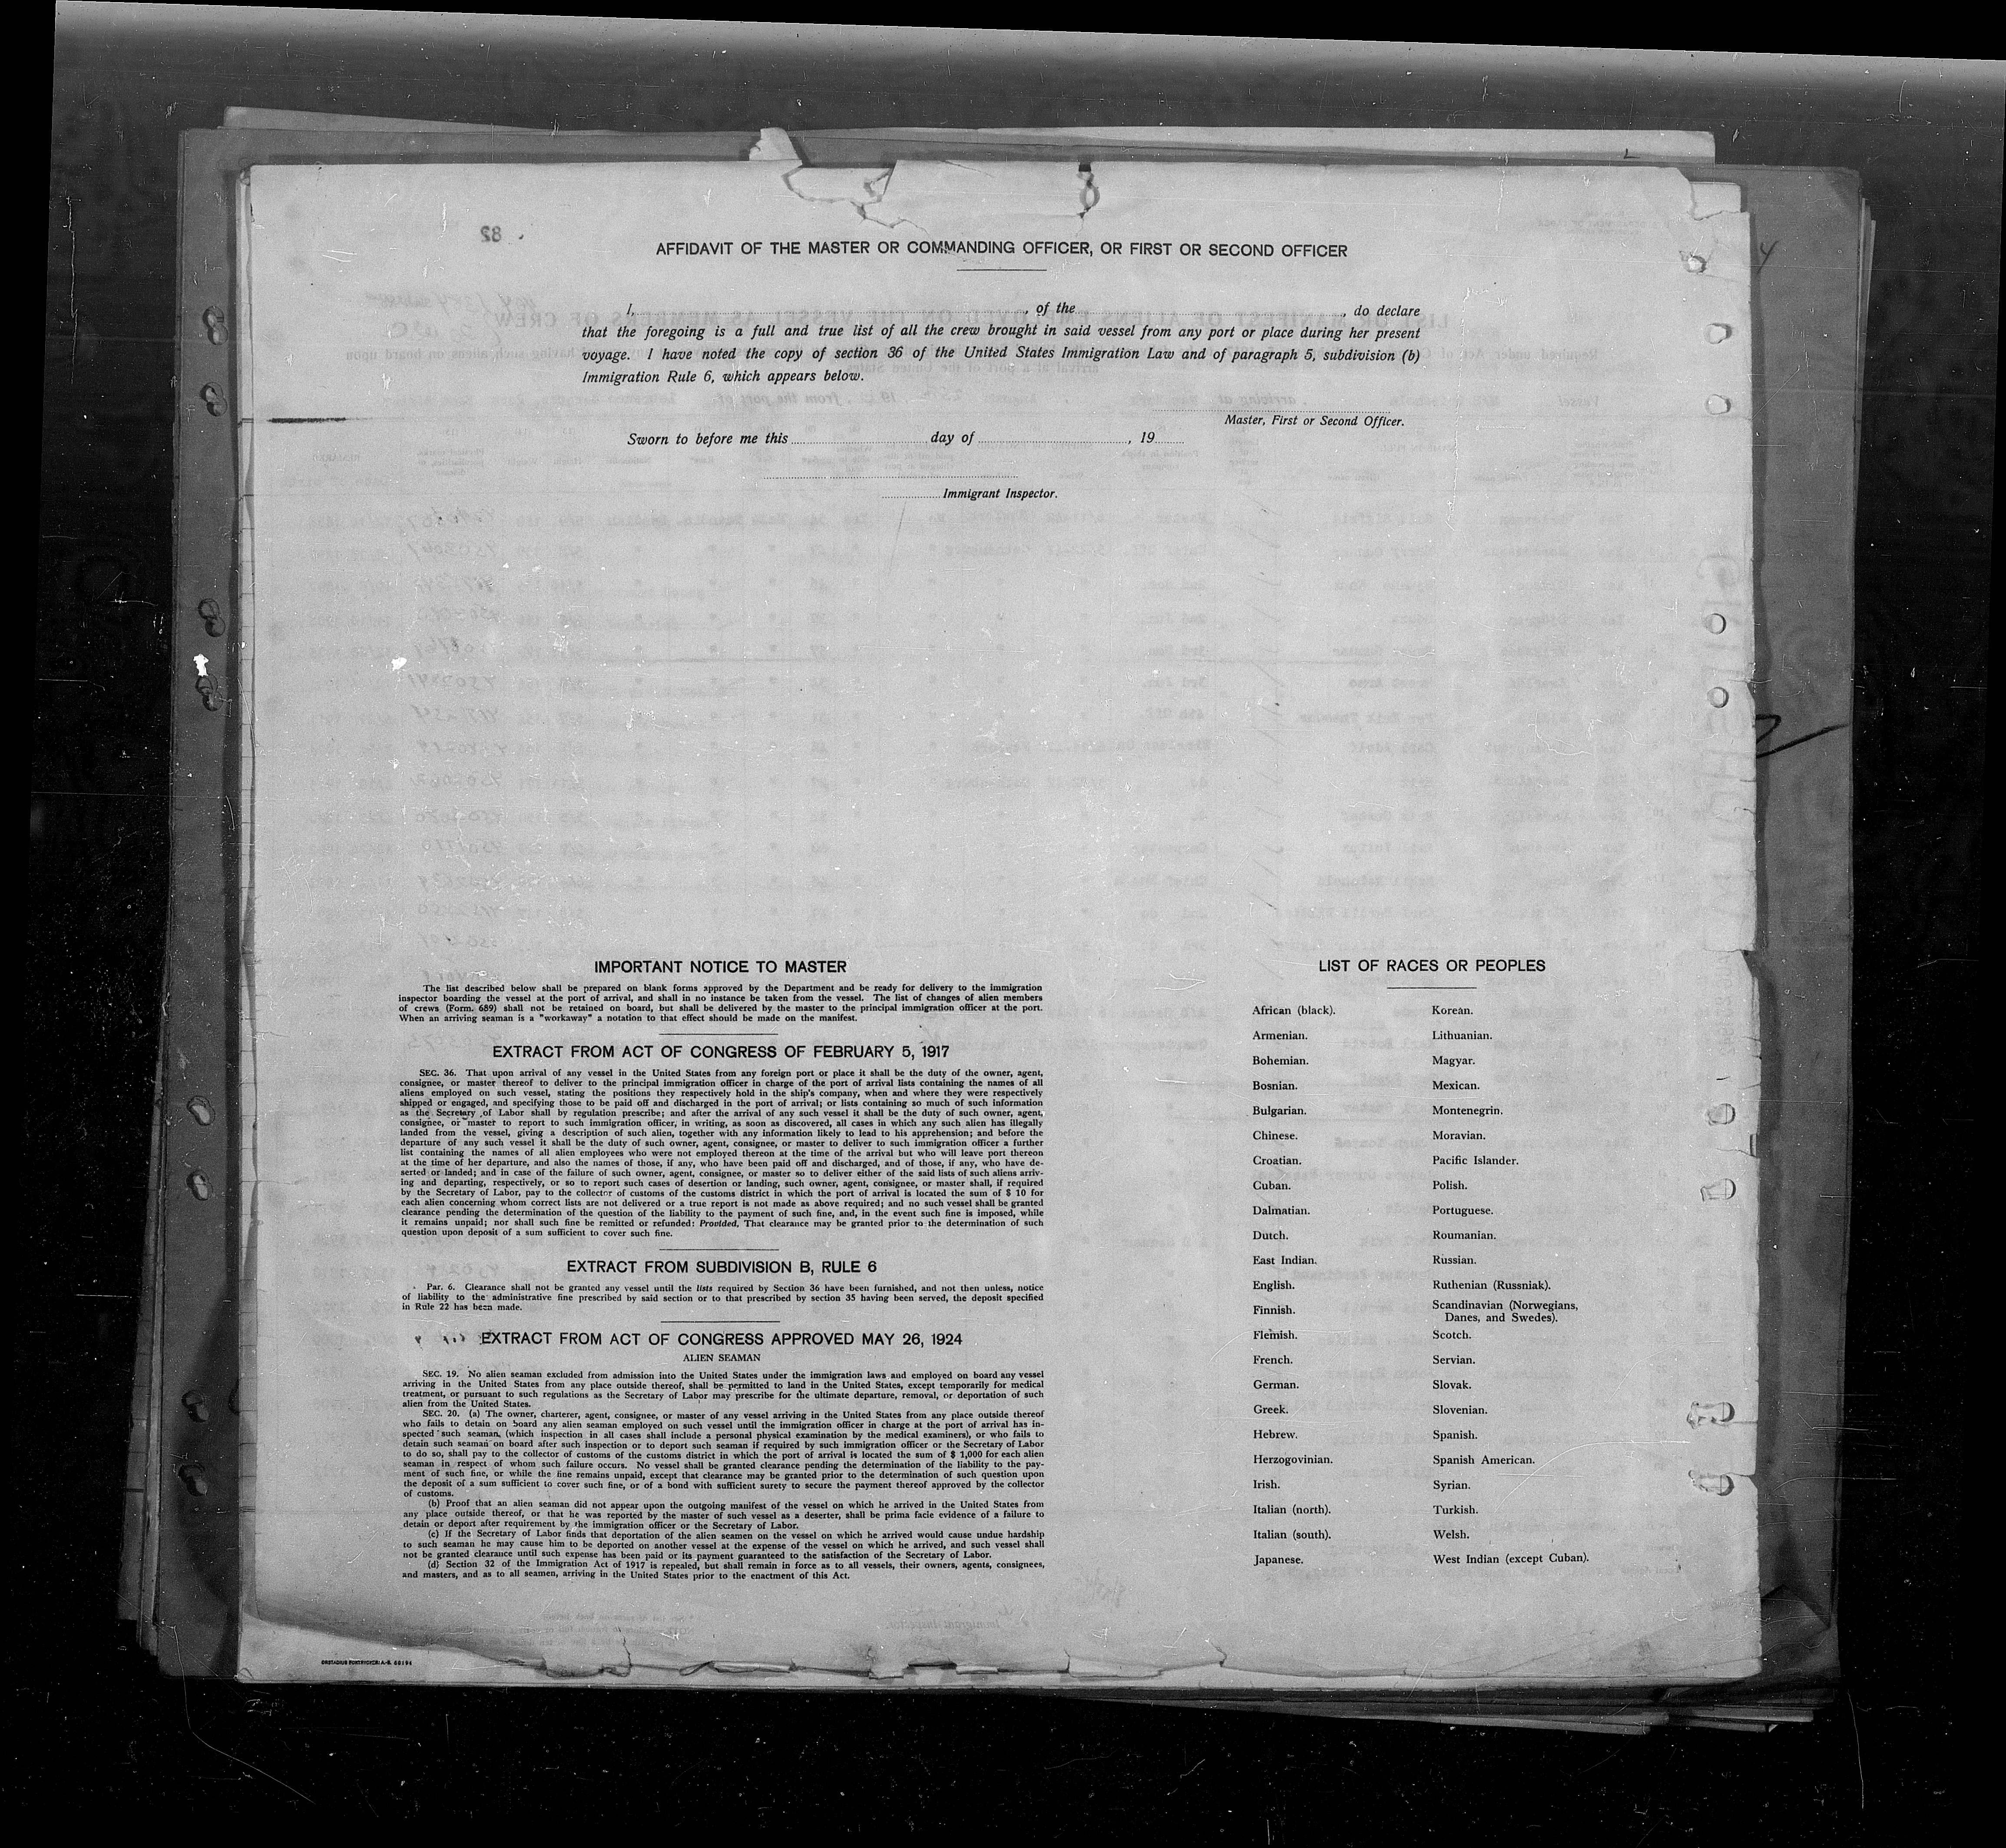 AFFIDAVIT OF THE MASTER OR COMMANDING OFFICER, OR FIRST OR SECOND OFFICER
I, , of the , do declare
that the foregoing is a full and true list of all the crew brought in said vessel from any port or place during her present
voyage. I have noted the copy of section 36 of the United States Immigration Law and of paragraph 5, subdivision (b)
Immigration Rule 6, which appears below.
Master, First or Second Officer.
Sworn to before me this day of , 19
Immigrant Inspector.
IMPORTANT NOTICE TO MASTER
The list described below shall be prepared on blank forms approved by the Department and be ready for delivery to the immigration
inspector boarding the vessel at the port of arrival, and shall in no instance be taken from the vessel. The list of changes of alien members
of crews (Form. 689) shall not be retained on board, but shall be delivered by the master to the principal immigration officer at the port.
When an arriving seaman is a "workaway" a notation to that effect should be made on the manifest.
EXTRACT FROM ACT OF CONGRESS OF FEBRUARY 5, 1917
SEC. 36. That upon arrival of any vessel in the United States from any foreign port or place it shall be the duty of the owner, agent,
consignee, or master thereof to deliver to the principal immigration officer in charge of the port of arrival lists containing the names of all
aliens employed on such vessel, stating the positions they respectively hold in the ship's company, when and where they were respectively
shipped or engaged, and specifying those to be paid off and discharged in the port of arrival; or lists containing so much of such information
as the Secretary of Labor shall by regulation prescribe; and after the arrival of any such vessel it shall be the duty of such owner, agent,
consignee, or master to report to such immigration officer, in writing, as soon as discovered, all cases in which any such alien has illegally
landed from the vessel, giving a description of such alien, together with any information likely to lead to his apprehension; and before the
departure of any such vessel it shall be the duty of such owner, agent, consignee, or master to deliver to such immigration officer a further
list containing the names of all alien employees who were not employed thereon at the time of the arrival but who will leave port thereon
at the time of her departure, and also the names of those, if any, who have been paid off and discharged, and of those, if any, who have de-
serted or landed; and in case of the failure of such owner, agent, consignee, or master so to deliver either of the said lists of such aliens arriv-
ing and departing, respectively, or so to report such cases of desertion or landing, such owner, agent, consignee, or master shall, if required
by the Secretary of Labor, pay to the collector of customs of the customs district in which the port of arrival is located the sum of $ 10 for
each alien concerning whom correct lists are not delivered or a true report is not made as above required; and no such vessel shall be granted
clearance pending the determination of the question of the liability to the payment of such fine, and, in the event such fine is imposed, while
it remains unpaid; nor shall such fine be remitted or refunded: Provided, That clearance may be granted prior to the determination of such
question upon deposit of a sum sufficient to cover such fine.
EXTRACT FROM SUBDIVISION B, RULE 6
Par. 6. Clearance shall not be granted any vessel until the lists required by Section 36 have been furnished, and not then unless, notice
of liability to the administrative fine prescribed by said section or to that prescribed by section 35 having been served, the deposit specified
in Rule 22 has been made.
EXTRACT FROM ACT OF CONGRESS APPROVED MAY 26, 1924
ALIEN SEAMAN
SEC. 19. No alien seaman excluded from admission into the United States under the immigration laws and employed on board any vessel
arriving in the United States from any place outside thereof, shall be permitted to land in the United States, except temporarily for medical
treatment, or pursuant to such regulations as the Secretary of Labor may prescribe for the ultimate departure, removal, or deportation of such
alien from the United States.
SEC. 20. (a) The owner, charterer, agent, consignee, or master of any vessel arriving in the United States from any place outside thereof
who fails to detain on board any alien seaman employed on such vessel until the immigration officer in charge at the port of arrival has in-
spected such seaman, (which inspection in all cases shall include a personal physical examination by the medical examiners), or who fails to
detain such seaman on board after such inspection or to deport such seaman if required by such immigration officer or the Secretary of Labor
to do so, shall pay to the collector of customs of the customs district in which the port of arrival is located the sum of $ 1,000 for each alien
seaman in respect of whom such failure occurs. No vessel shall be granted clearance pending the determination of the liability to the pay-
ment of such fine, or while the fine remains unpaid, except that clearance may be granted prior to the determination of such question upon
the deposit of a sum sufficient to cover such fine, or of a bond with sufficient surety to secure the payment thereof approved by the collector
of customs.
(b) Proof that an alien seaman did not appear upon the outgoing manifest of the vessel on which he arrived in the United States from
any place outside thereof, or that he was reported by the master of such vessel as a deserter, shall be prima facie evidence of a failure to
detain or deport after requirement by the immigration officer or the Secretary of Labor.
(c) If the Secretary of Labor finds that deportation of the alien seamen on the vessel on which he arrived would cause undue hardship
to such seaman he may cause him to be deported on another vessel at the expense of the vessel on which he arrived, and such vessel shall
not be granted clearance until such expense has been paid or its payment guaranteed to the satisfaction of the Secretary of Labor.
(d) Section 32 of the Immigration Act of 1917 is repealed, but shall remain in force as to all vessels, their owners, agents, consignees,
and masters, and as to all seamen, arriving in the United States prior to the enactment of this Act.
LIST OF RACES OR PEOPLES
African (black).
Armenian.
Bohemian.
Bosnian.
Bulgarian.
Chinese.
Croatian.
Cuban.
Dalmatian.
Dutch.
East Indian.
English.
Finnish.
Flemish.
French.
German.
Greek.
Hebrew.
Herzogovinian.
Irish.
Italian (north).
Italian (south).
Japanese.
Korean.
Lithuanian.
Magyar.
Mexican.
Montenegrin.
Moravian.
Pacific Islander.
Polish.
Portuguese.
Roumanian.
Russian.
Ruthenian (Russniak).
Scandinavian (Norwegians,
Danes, and Swedes).
Scotch.
Servian.
Slovak.
Slovenian.
Spanish.
Spanish American.
Syrian.
Turkish.
Welsh.
West Indian (except Cuban).